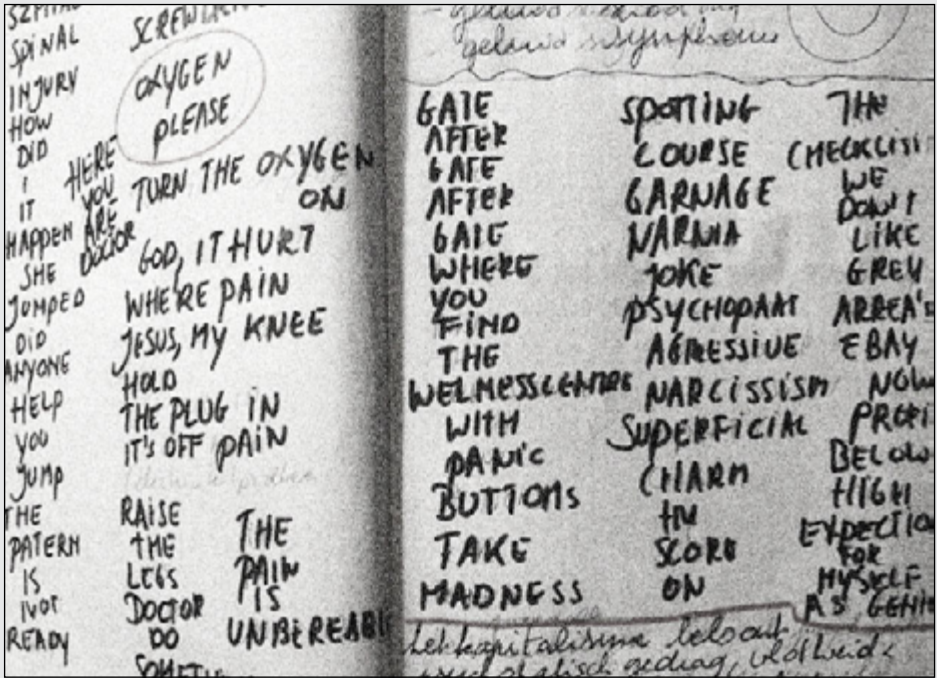 SPINAL
INJURY
HOW
DID
I
IT
HAPPEN
SHE
JOMPED
DID
ANYONE
HELP
YOU
JUMP
THE
PATERN
IS
NOT
READY
HERE
YOU
ARE
DOCTOR
OXYGEN
PLEASE
TURN THE OXYGEN
ON
GOD, IT HURT
WHERE PAIN
JESUS, MY KNEE
HOLD
THE PLUG IN
IT'S OFF PAIN
RAISE
THE
LEGS
DOCTOR
DO
THE
PAIN
IS
UNBEREABL
GATE
AFTER
GATE
AFTER
GATE
WHERE
YOU
FIND
THE
WELNESSCENTRE
WITH
PANIC
BUTTONS
TAKE
MADNESS
SPOTTING
COURSE
GARNAGE
NARNIA
JOKE
PSYCHOPAAT
AGRESSIVE
NARCISSISM
SUPERFICIAL
CHARM
IN
SCORE
ON
THE
CHECKLIST
WE
DON'T
LIKE
GREY
ARREA'S
EBAY
NOW
PROFI
BELOW
HIGH
EXPECTIO
FOR
MYSELF
AS GENI
gedrag,